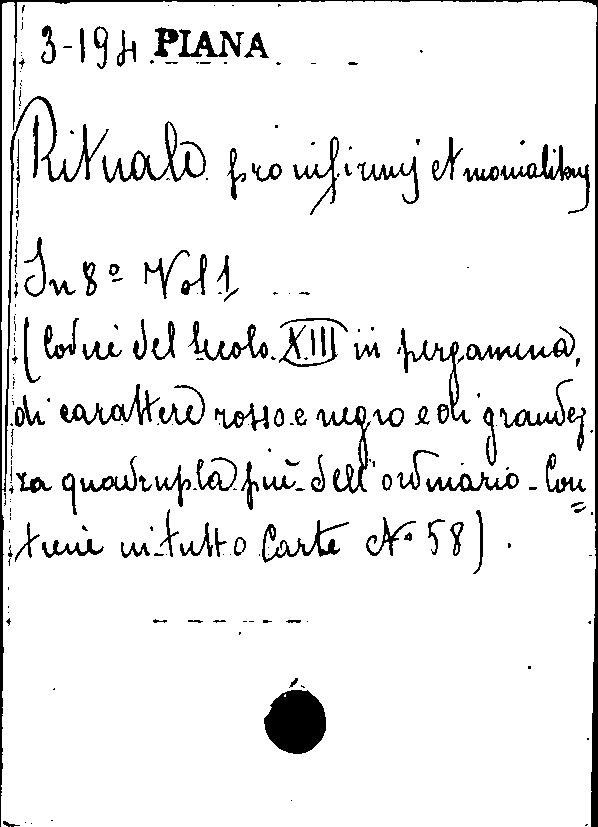 3-194 PIANA
Rituale pro infirmis et monialibus
In 8º Vol 1
(Codice del secolo XIII in pergamena,
di carattere rosso e negro e di grandez
za quadrupla più dell'ordinario - Con
tiene in tutto Carte Nº 58).